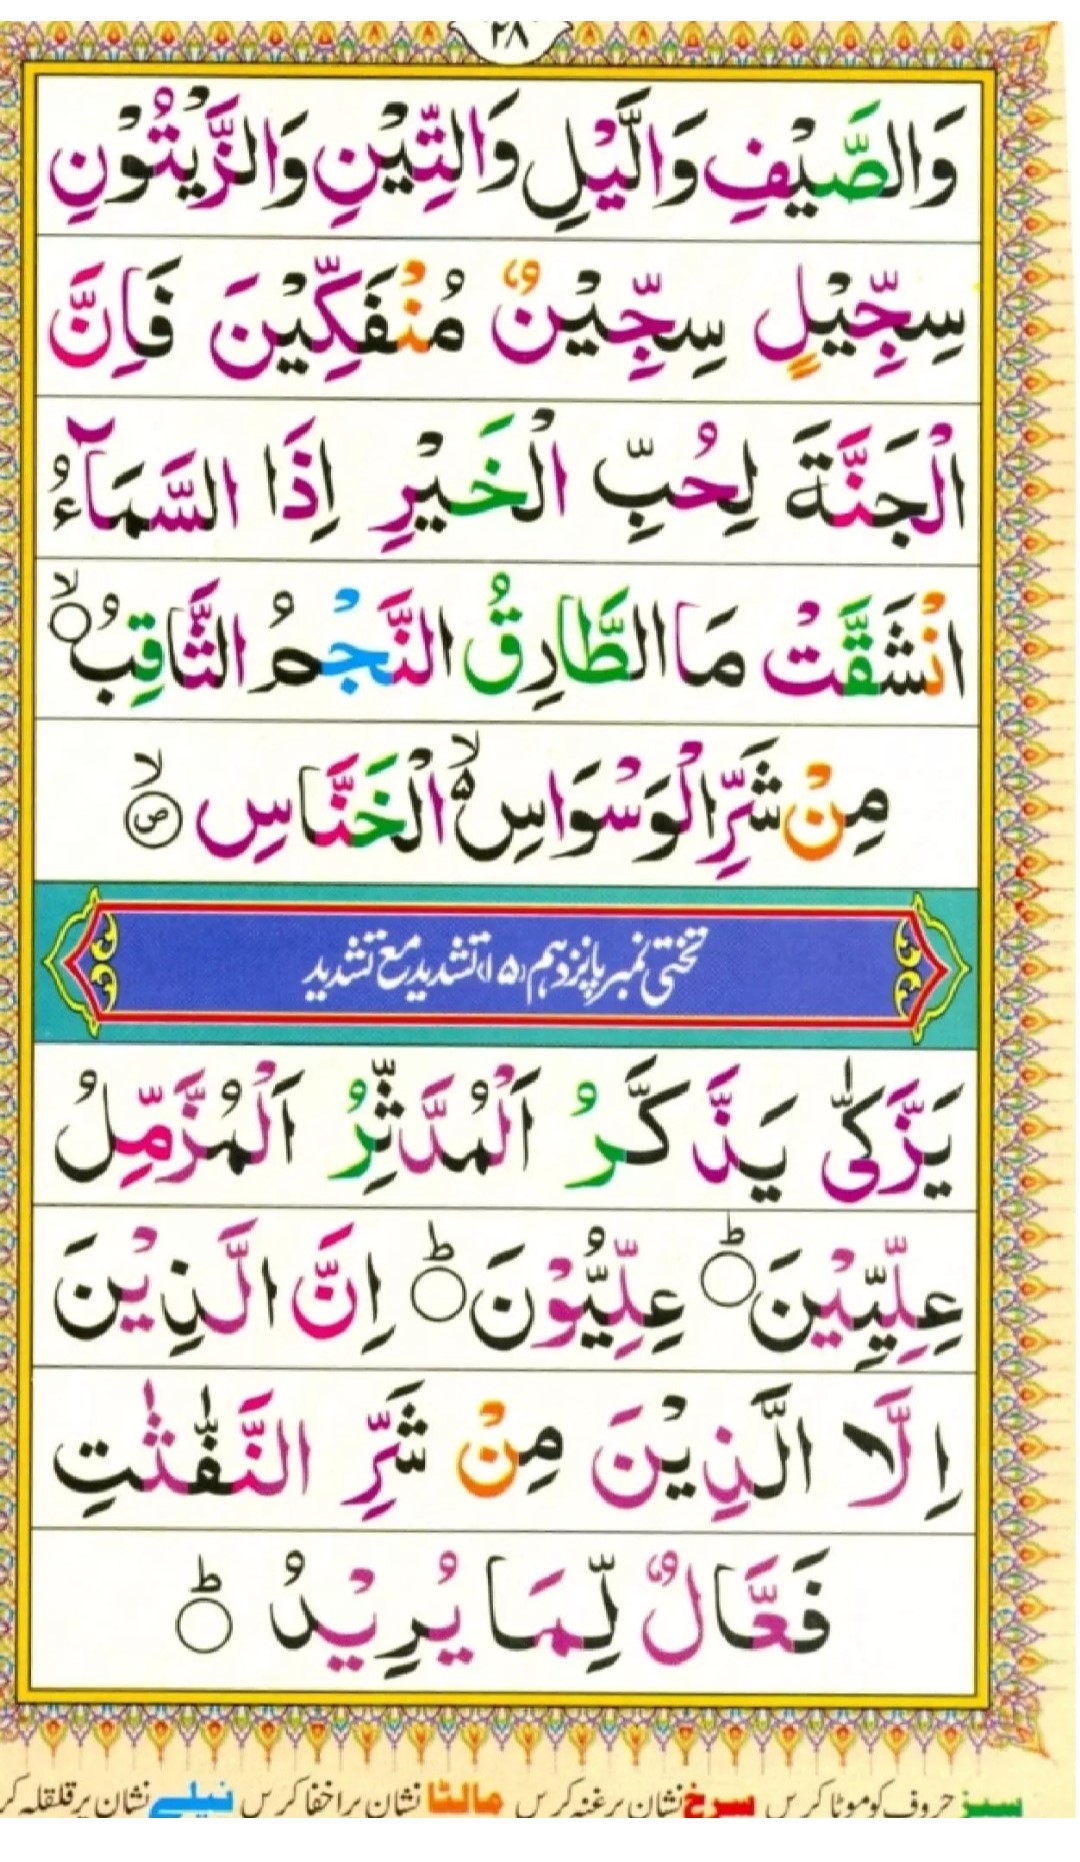 ٢٨
وَالصَّيْفِ وَالَّيْلِ وَالتِّيْنِ وَالزَّيْتُوْنِ
سِجِّيْلٍ سِجِّيْنٌ مُنْفَكِّيْنَ فَاِنَّ
الْجَنَّةَ لِحُبِّ الْخَيْرِ اِذَا السَّمَآءُ
انْشَقَّتْ مَا الطَّارِقُ النَّجْمُ الثَّاقِبُ ۙ
مِنْ شَرِّ الْوَسْوَاسِ ۙ٥ الْخَنَّاسِ ۙ ص
تختی نمبر پانزدہم (۱۵) تشدید مع تشدید
يَزَّكّٰى يَذَّكَّرُ اَلْمُدَّثِّرُ اَلْمُزَّمِّلُ
عِلِّيِّيْنَ ؕ عِلِّيُّوْنَ ؕ اِنَّ الَّذِيْنَ
اِلَّا الَّذِيْنَ مِنْ شَرِّ النَّفّٰثٰتِ
فَعَّالٌ لِّمَا يُرِيْدُ ؕ
سبز حروف کو موٹا کریں سرخ نشان پر غنہ کریں مالٹا نشان پر اخفا کریں نیلے نشان پر قلقلہ کر